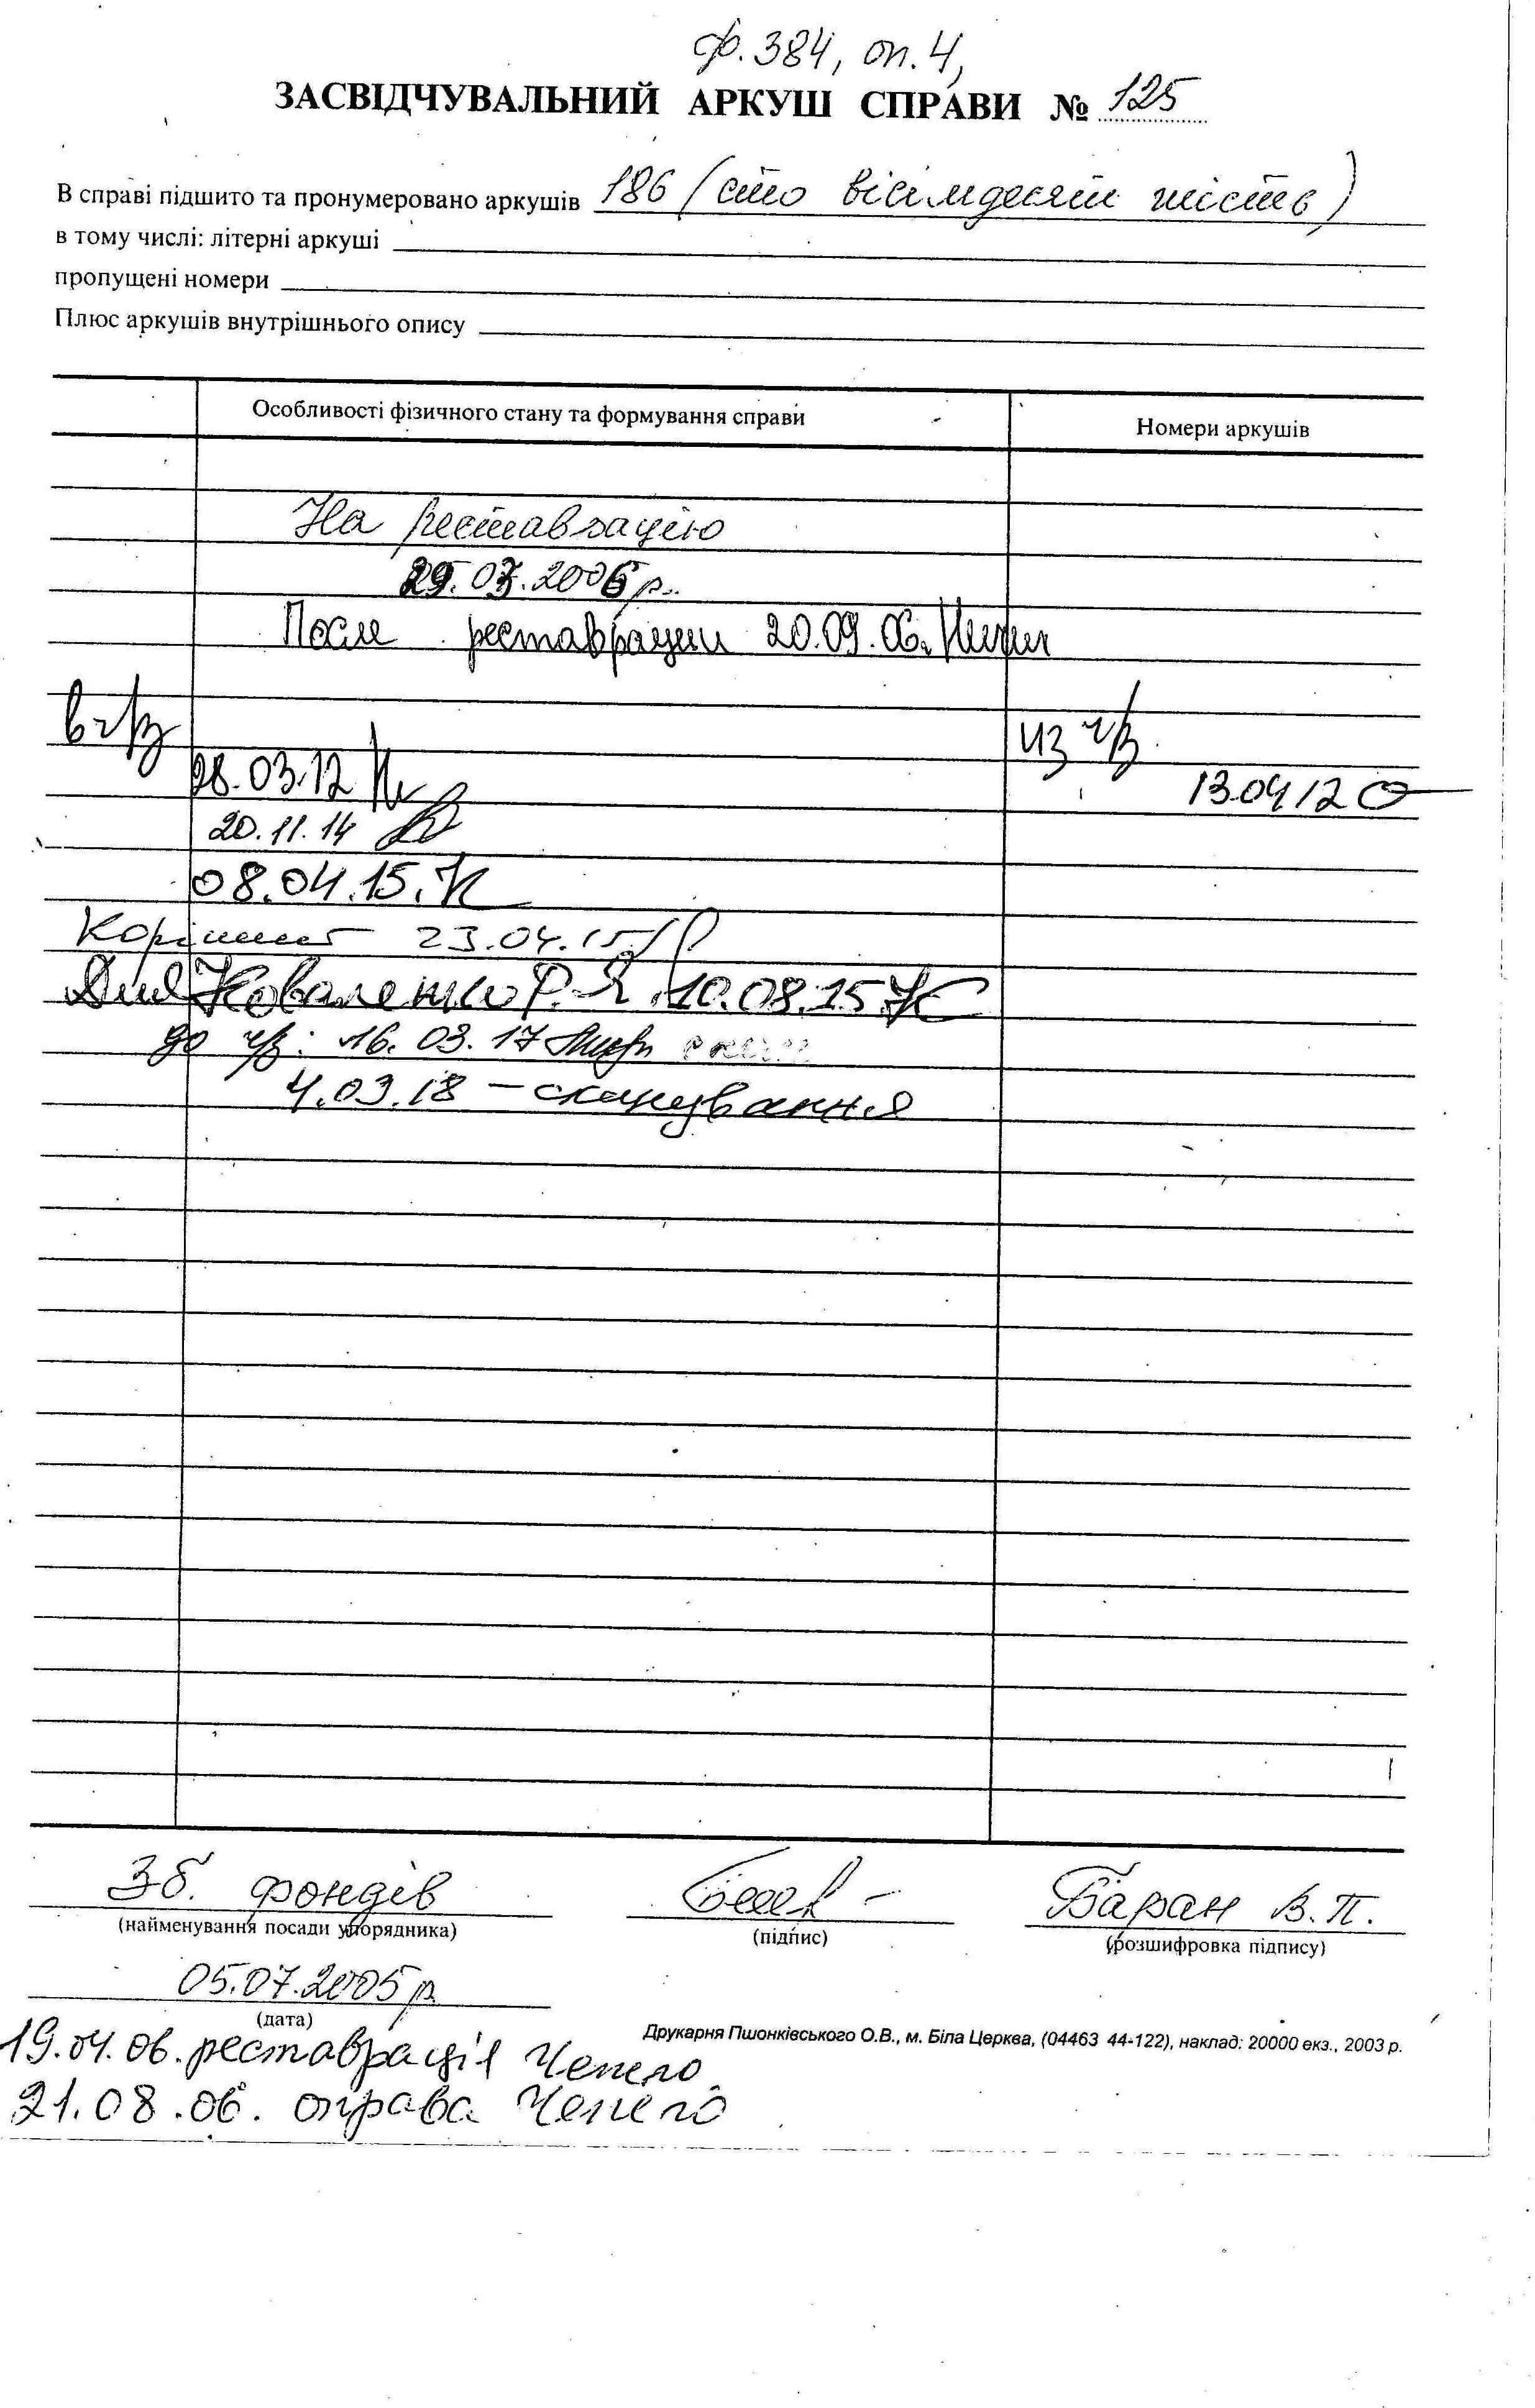 ф. 384, оп. 4,
ЗАСВІДЧУВАЛЬНИЙ АРКУШ СПРАВИ № 125
В справі підшито та пронумеровано аркушів 186 (сто вісімдесят шість)
в тому числі: літерні аркуші
пропущені номери
Плюс аркушів внутрішнього опису
Особливості фізичного стану та формування справи
Номери аркушів
На реставрацію
29.03.2006 р.
После реставрации 20.09.06.
в ч/з
из ч/з
28.03.12
13.04 12
20.11.14
08.04.15.
23.04.15
Для Коваленко Р. Я. 10.08.15
до ч/з: 16.03.17
4.03.18 – сканування
Зб. фондів
Баран В.П.
(найменування посади упорядника)
(підпис)
(розшифровка підпису)
05.07.2005 р.
(дата)
Друкарня Пшонківського О.В., м. Біла Церква, (04463 44-122), наклад: 20000 екз., 2003 р.
19.04.06. реставрація
21.08.06. оправа